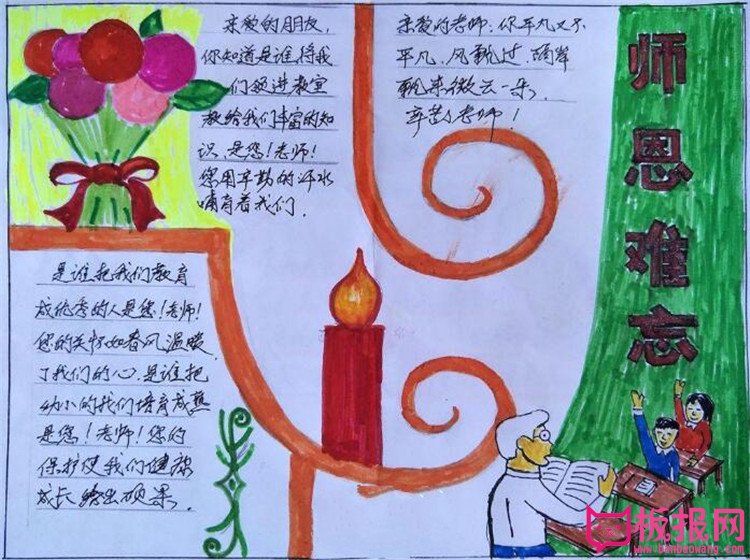 亲爱的朋友,
你知道是谁将我
们领进教室
教给我们丰富的知
识,是您!老师!
您用辛勤的汗水
哺育着我们.
亲爱的老师.你平凡又不
平凡.风飘过.
飘来微云一朵,
辛苦了老师!
师恩难忘
是谁把我们教育
成优秀的人是您!老师!
您的关怀如春风温暖
了我们的心.是谁把
幼小的我们培育成熟
是您!老师!您的
保护使我们健康
成长 结出硕果.
板报网
www.banbaowang.com